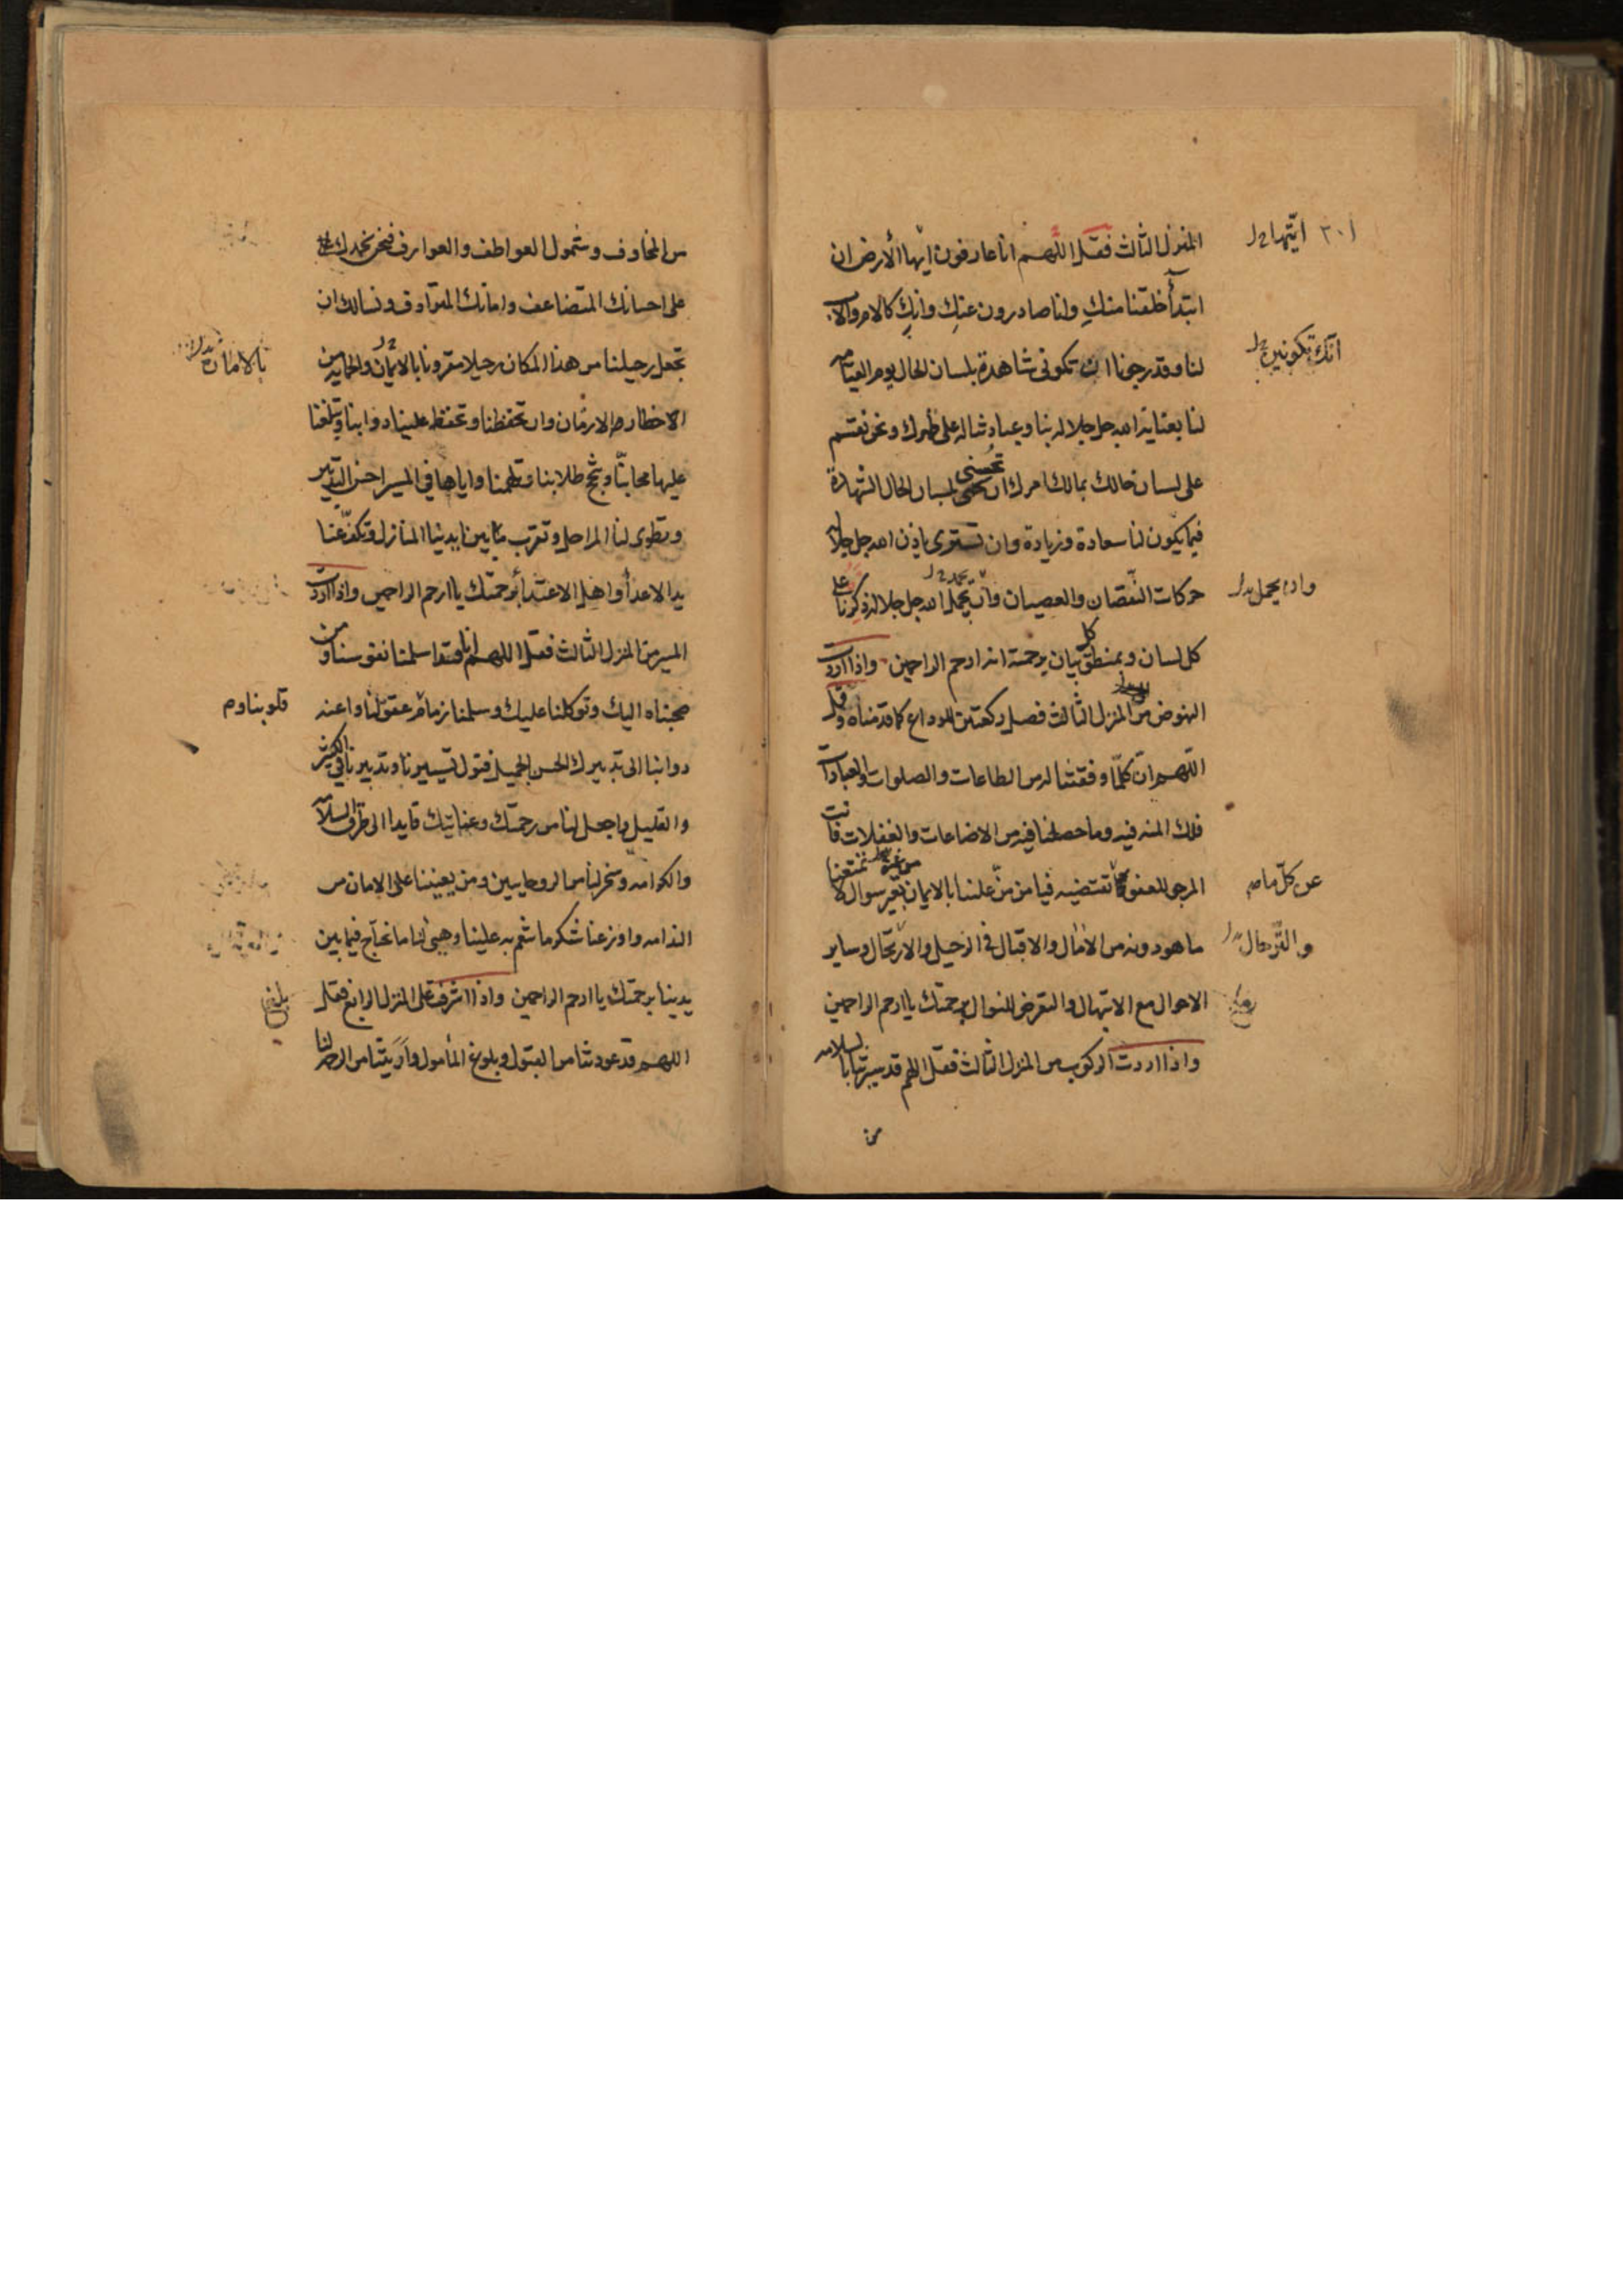 المنزل الثالث فقل اللهم انا عارفون ايها الأرض ان
ابتدأ خلقنا منكِ واننا صادرون عنكِ وانكِ كالام والاب
لنا وقد رجونا ان تكونى شاهدة بلسان الحال يوم القيامه
لنا بعناية الله جل جلاله بنا وعبادتنا له على ظهرك ونحن نقسم
على لسان حالك بمالك امرك ان تحسنى بلسان الحال الشهادة
فيما يكون لنا سعادة وزيادة وان تسترى باذن الله جل جلاله
حركات النقصان والعصيان وان يجمل الله جل جلاله ذكرنا على
كل لسان وبمنطق كل بيان برحمته انه ارحم الراحمين واذا اردت
النهوض من المنزل الثالث فصل ركعتين للوداع كما قدمناه وقل
اللهم ان كلما وفقتنا له من الطاعات والصلوات والعبادات
فلك المنه فيه وما حصلنا فيه من الاضاعات والغفلات فانت
المرجو للعفو عما تقتضيه فيا من منّ علينا بالايمان بغير سوال لا تمنعنا
ما هو دونه من الامال والاقبال فى الرحيل والارتحال وساير
الاحوال مع الابتهال والتعرض للنوال برحمتك يا ارحم الراحمين
واذا اردت الركوب من المنزل الثالث فقل اللهم قد سيرتنا بالسلامه
من
ايتها
انك تكونين
وان يجمل
عن كل ما
والترحال
من المخاوف وشمول العواطف والعوارف فنحن نحمدك
على احسانك المتضاعف وامانك المترادف ونسالك ان
تجعل رحيلنا من هذا المكان رحيلا مقرونا بالايمان والحمايه من
الاخطار والازمان وان تحفظنا وتحفظ علينا دوابنا وتبلغنا
عليها محابنا وبنجح طلابنا وتلهمنا واياها فى المسير احسن التدبير
وتطوى لنا المراحل وتقرب ما بين ايدينا المنازل وتكف عنا
يد الاعدآ واهل الاعتدآ برحمتك يا ارحم الراحمين واذا اردت
المسير من المنزل الثالث فقل اللهم انا قد سلمنا نفوسنا ومن
صحبناه اليك وتوكلنا عليك وسلمنا زمام عقولنا واعنه
دوابنا الى تدبيرك الحسن الجميل فتول تسييرنا وتدبيرنا فى الكثير
والقليل واجعل لنا من رحمتك وعنايتك قايدا الى طرق السلامه
والكرامه وسخر لنا من الروحانيين ومن يعيننا على الامان من
الندامه واوزعنا شكر ما تنعم به علينا وهيئ لنا ما نحتاج فيما بين
يدينا برحمتك يا ارحم الراحمين واذا اشرفت على المنزل الرابع فقل
اللهم قد عودتنا من القبول وبلوغ المأمول واريتنا من
بالامان
قلوبنا و
بلغ